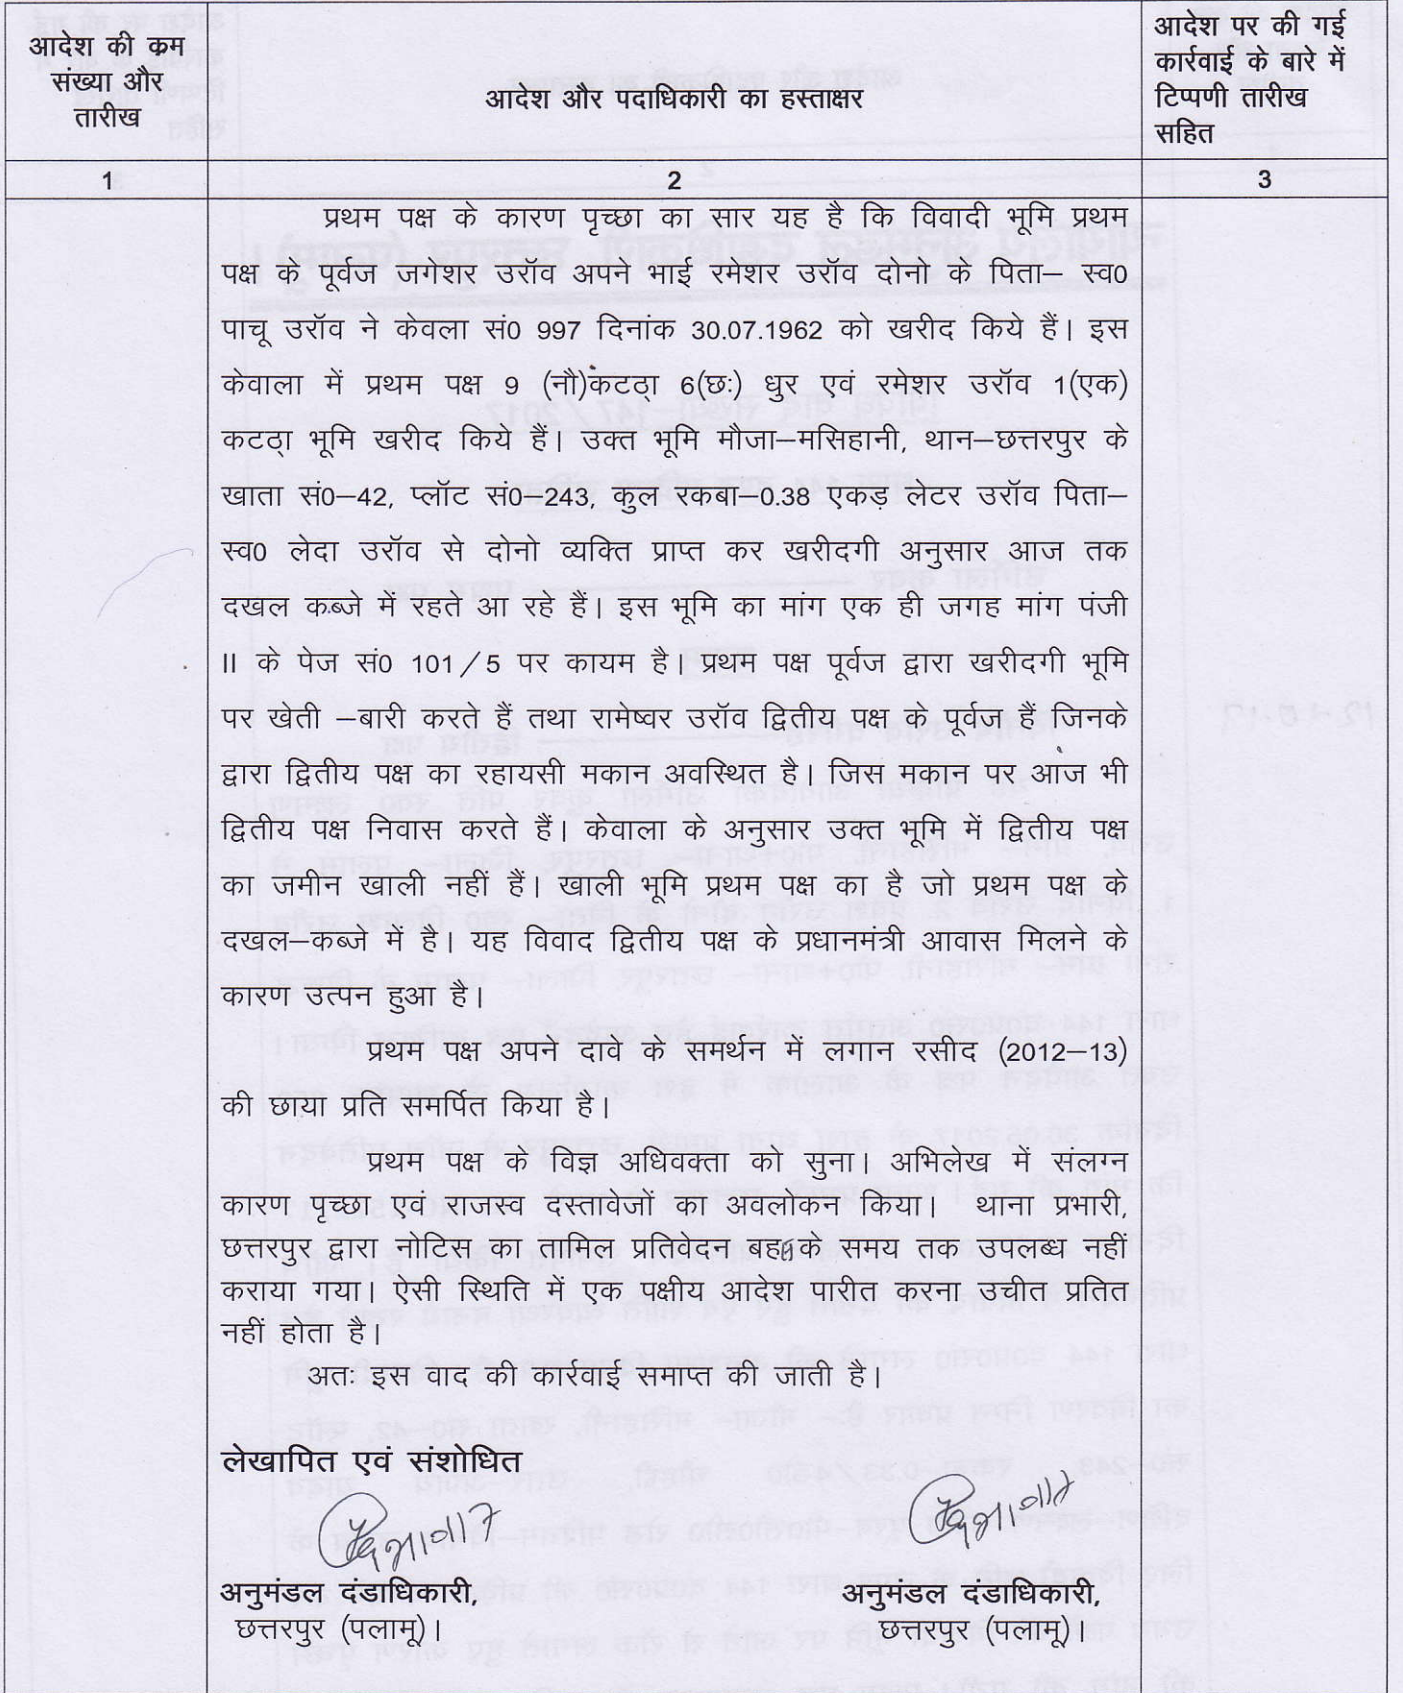 आदेश की क्रम
संख्या और
तारीख
आदेश और पदाधिकारी का हस्ताक्षर
आदेश पर की गई
कार्रवाई के बारे में
टिप्पणी तारीख
सहित
1
2
3
प्रथम पक्ष के कारण पृच्छा का सार यह है कि विवादी भूमि प्रथम
पक्ष के पूर्वज जगेशर उराॅव अपने भाई रमेशर उराॅव दोनो के पिता– स्व0
पाचू उराॅव ने केवला सं0 997 दिनांक 30.07.1962 को खरीद किये हैं। इस
केवाला में प्रथम पक्ष 9 (नौ)कटठा् 6(छः) धुर एवं रमेशर उराॅव 1(एक)
कटठा् भूमि खरीद किये हैं। उक्त भूमि मौजा–मसिहानी, थान–छत्तरपुर के
खाता सं0–42, प्लाॅट सं0–243, कुल रकबा–0.38 एकड़ लेटर उराॅव पिता–
स्व0 लेदा उराॅव से दोनो व्यक्ति प्राप्त कर खरीदगी अनुसार आज तक
दखल कब्जे में रहते आ रहे हैं। इस भूमि का मांग एक ही जगह मांग पंजी
II के पेज सं0 101/5 पर कायम है। प्रथम पक्ष पूर्वज द्वारा खरीदगी भूमि
पर खेती –बारी करते हैं तथा रामेष्वर उराॅव द्वितीय पक्ष के पूर्वज हैं जिनके
द्वारा द्वितीय पक्ष का रहायसी मकान अवस्थित है। जिस मकान पर आज भी
द्वितीय पक्ष निवास करते हैं। केवाला के अनुसार उक्त भूमि में द्वितीय पक्ष
का जमीन खाली नहीं हैं। खाली भूमि प्रथम पक्ष का है जो प्रथम पक्ष के
दखल–कब्जे में है। यह विवाद द्वितीय पक्ष के प्रधानमंत्री आवास मिलने के
कारण उत्पन हुआ है।
प्रथम पक्ष अपने दावे के समर्थन में लगान रसीद (2012–13)
की छाया प्रति समर्पित किया है।
प्रथम पक्ष के विज्ञ अधिवक्ता को सुना। अभिलेख में संलग्न
कारण पृच्छा एवं राजस्व दस्तावेजों का अवलोकन किया। थाना प्रभारी,
छत्तरपुर द्वारा नोटिस का तामिल प्रतिवेदन बहस के समय तक उपलब्ध नहीं
कराया गया। ऐसी स्थिति में एक पक्षीय आदेश पारीत करना उचीत प्रतित
नहीं होता है।
अतः इस वाद की कार्रवाई समाप्त की जाती है।
लेखापित एवं संशोधित
अनुमंडल दंडाधिकारी,
छत्तरपुर (पलामू)।
अनुमंडल दंडाधिकारी,
छत्तरपुर (पलामू)।